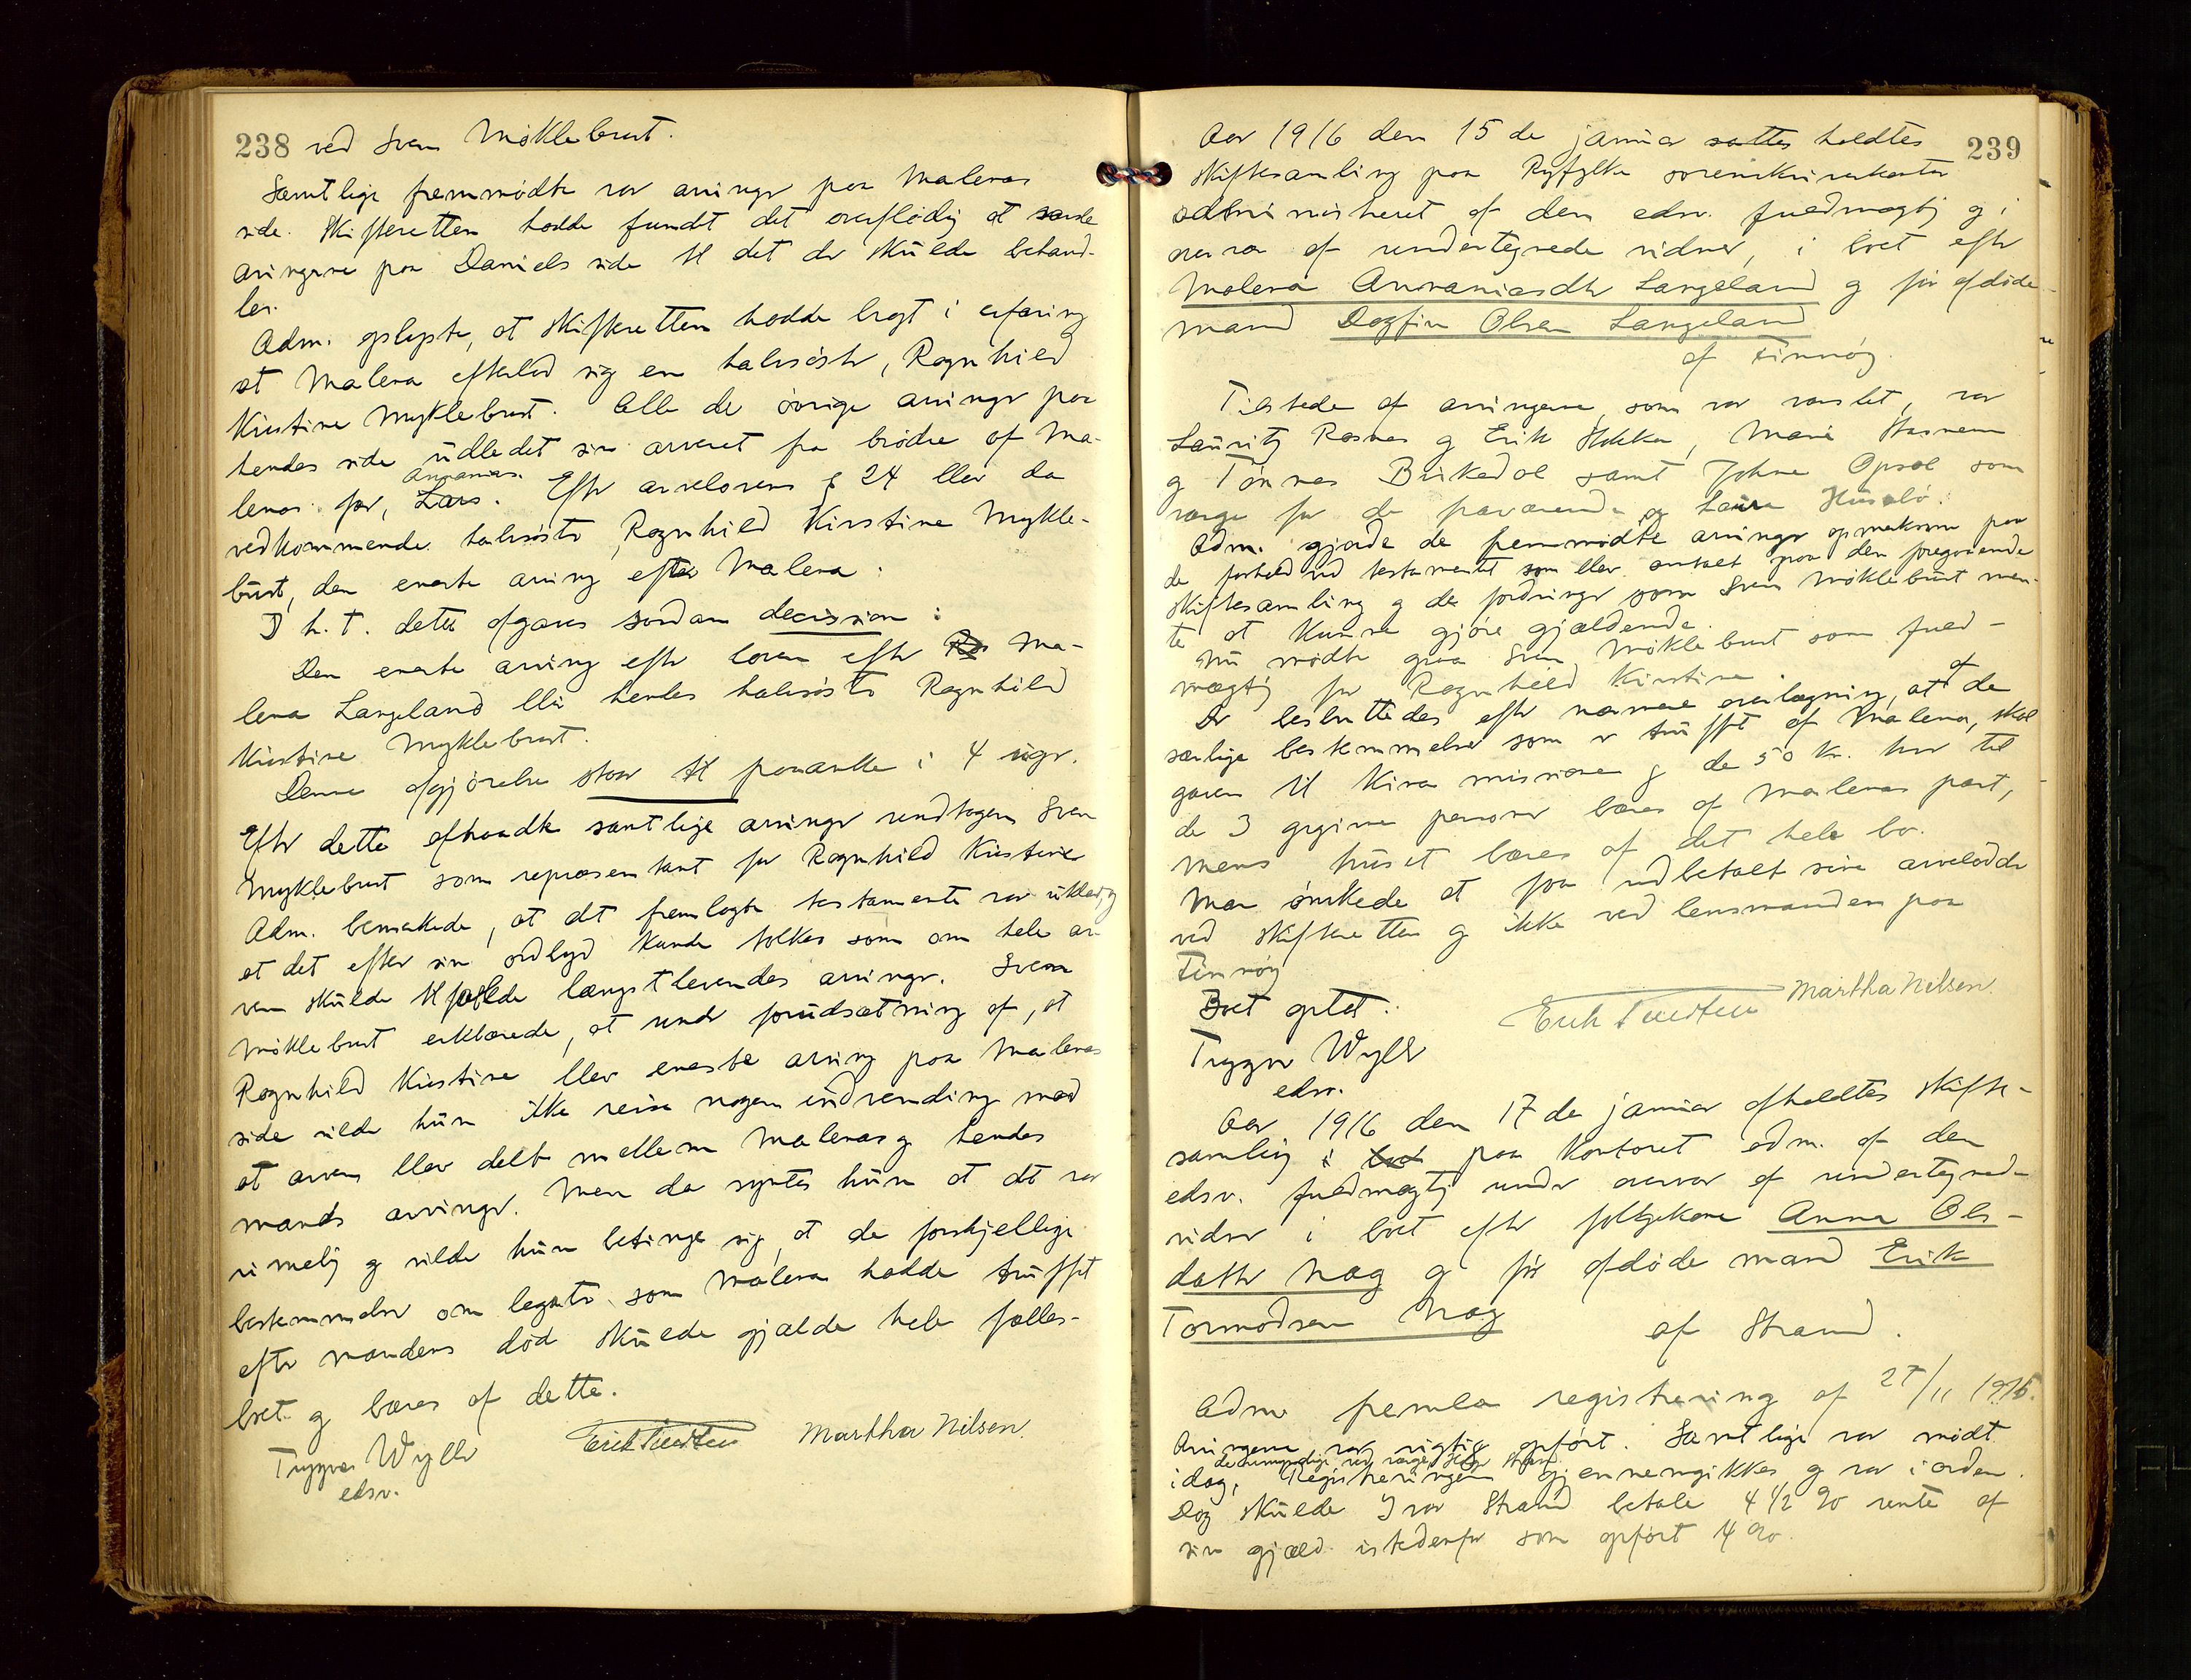 238 ved Sven Møklebust.
Samtlige fremmødte var arvinger paa Malenas
side. Skifteretten hadde fundet det overflødig at varsle
arvingene paa Daniels side til det der skulde behand-
les.
Adm. oplyste, at skifteretten hadde bragt i erfaring
at Malena efterlod sig en halvsøster, Ragnhild
Kirstine Myklebust. Alle de øvrige arvinger paa
hendes side utledet sin arveret fra brødre af Ma-
lenas far, Lars. Ananias. Efter arvelovens § 24 blev da
vedkommende halvsøster, Ragnhild Kirstine Mykle-
bust, den eneste arving efter Malena.
I h. t. dette afgaves saadan decission:
Den eneste arving efter loven efter Ra Ma-
lena Langeland blir hendes halvsøster Ragnhild
Kirstine Myklebust.
Denne afgjørelse staar til paaanke i 4 uger.
Efter dette afhandlet samtlige arvinger undtagen Sven
Myklebust som repræsentant for Ragnhild Kirstine
Adm. bemerkede, at det fremlagte testamente var uklart og
at det efter sin ordlyd kunde tolkes som om hele ar-
ven skulde tilfalde længstlevendes arvinger. Sven
Møklebust erklærede, at under forudsætning af, at
Ragnhild Kirstine blev eneste arving paa Malenas
side vilde hun ikke reise nogen indvending mod
at arven blev delt mellem Malenas og hendes
mands arvinger. Men da syntes hun at det var
rimelig og vilde hun betinge sig, at de forskjellige
bestemmelser om legater som Malena hadde truffet
efter mandens død skulde gjælde hele fælles-
boet og bæres af dette.
Trygve Wyller Erik Tveiten Martha Nilsen.
edsv.
239
Aar 1916 den 15de januar sattes holdtes
skiftesamling paa Ryfylke sorenskriverkontor
administreret af den edsv. fuldmægtig og i
nærvær af undertegnede vidner, i boet efter
Malena Ananiasdtr Langeland og før afdøde
mand Dagfin Olsen Langeland
af Finnøy.
Tilstede af arvingerne, som var varslet, var
Lauritz Rosnes og Erik Hokka, Marie Stasnem
og Tønnes Birkedal samt Johne Opsal som
værge for de fraværende og Laura Husebø.
Adm. gjorde de fremmødte arvinger opmerksom paa
de forhold ved testamentet som blev omtalt paa den foregaaende
skiftesamling og de fordringer som Sven Møklebust men-
te at kunne gjøre gjældende.
Nu mødte ogsaa Sven Møklebust som fuld-
mægtig for Ragnhild Kirstine.
Der besluttedes efter nærmere overlægning, at af de
særlige bestemmelser som er truffet af Malena, skal
gaven til Kina missionen og de 50 kr. hver til
de 3 opgivne personer bæres af Malenas part,
mens huset bæres af det hele bo.
Man ønskede at faa utbetalt sine arvelodder
ved skifteretten og ikke ved lensmanden paa
Finnøy
Boet optat.
Erik Tveiten Martha Nilsen
Trygve Wyller
edsv.
Aar 1916 den 17de januar afholdtes skifte-
samling i boet paa kontoret adm. af den
edsv. fuldmægtig under nærvær af undertegnede
vidner i boet efter folgekone Anna Ols-
datter Nag og før afdøde mand Erik
Tormodsen Nag
af Strand.
Adm. fremla registrering af 27/11 1915.
Arvingerne var rigtig opført. Samtlige var mødt
de umyndige ved værge Strand
idag, Registreringen gjennemgikkes og var i orden.
Dog skulde Ivar Strand betale 4 1/2 % rente af
sin gjæld istedenfor som opført 4 %.